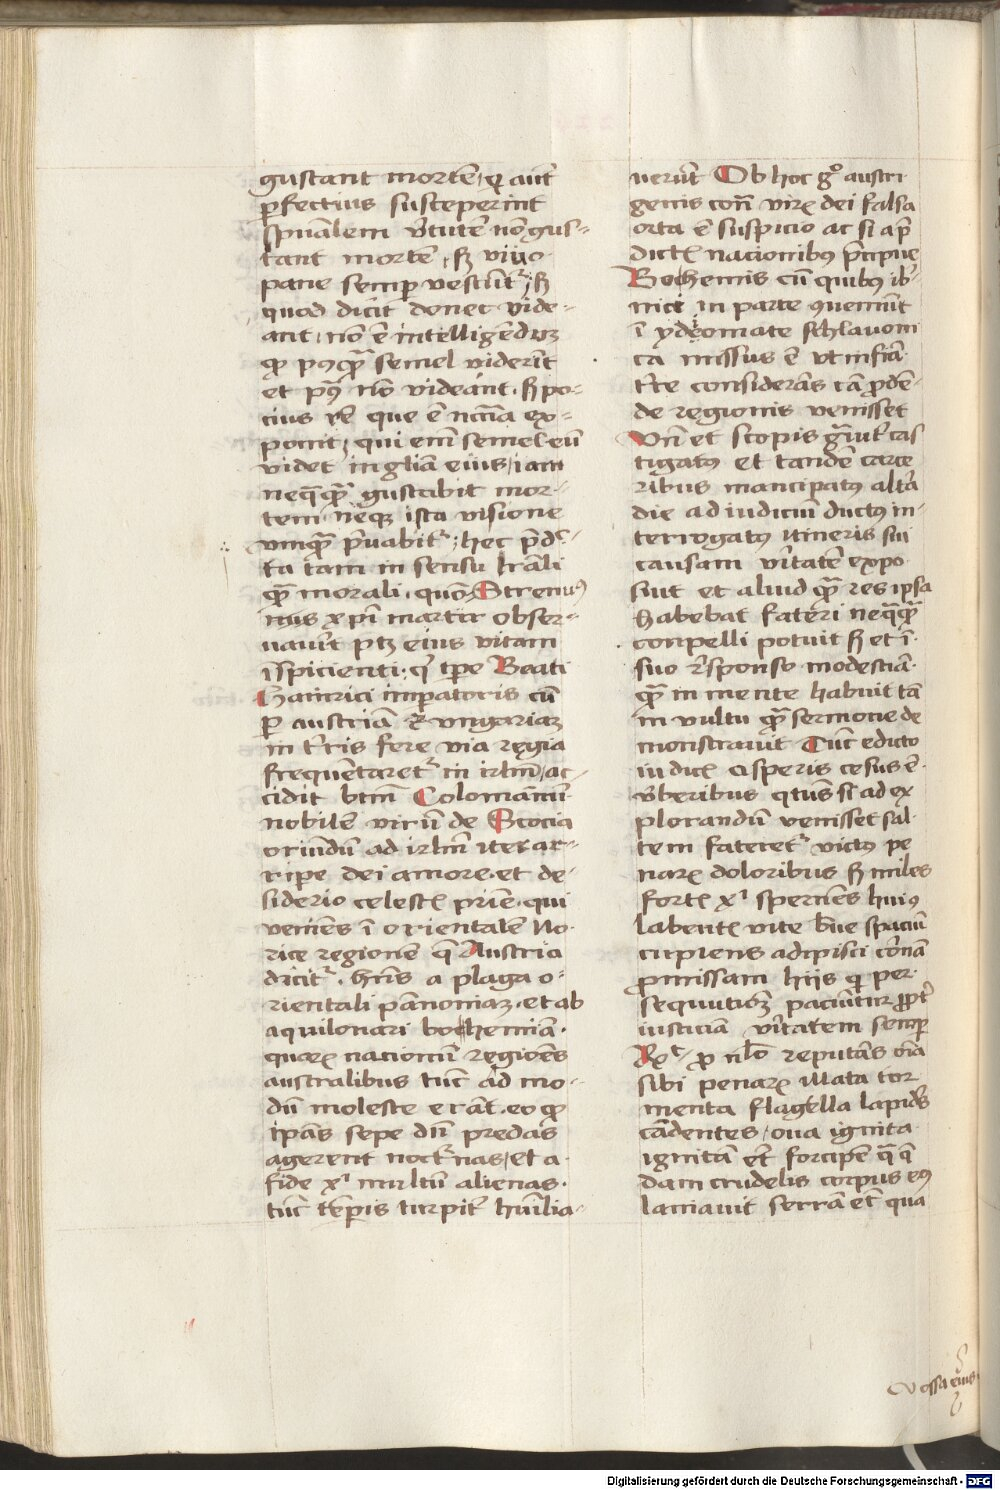 gustant mortē, q̄ autē
ꝑfectius susceperint
spūalem v̄tutē nō gus-
tant mortē, sꝫ viuo
pane semꝑ vescūtʳ, sꝫ
quod dicit donec vide-
ant, nō ē intelligēduꝫ
qꝫ postqꝫ semel viderīt
et post nō videant. sꝫ po-
cius rē que ē nccīa ex-
ponit, qui enī semel eū
videt in gliā eius, iam
neq̄qꝫ gustabit mor-
tem neqꝫ ista visione
vnqꝫ p̄uabitʳ, hec p̄dc̄-
ta tam in sensu lrāli
qꝫ morali, quō Strenuꝰ
mus xp̄i martir obser-
uauit ptꝫ eius vitam
īspicienti. qʳ tꝑe Beati
Hainrici imꝑatoris cū
ꝑ austriā et vngariaꝫ
in tʳris fere via regia
frequētaretʳ in irlm̄, ac-
cidit btm̄ Colomannū
nobilē virū de Scocia
oriundū ad irlm̄ iter ar-
ripe dei amore et de-
siderio celestis p̄rie. qui
veniēs ī orientalē No-
rice regionē q̄ Austria
dicitʳ. hn̄s a plaga o-
rientali pānoniaꝫ. et ab
aquilonari bochemiā.
quaꝝ nacionū regiōes
australibus tūc ad mo-
dū moleste erāt. eo qꝫ
ipās sepe dū predas
agerent noctʳnas, et a
fide xⁱ multū alienas.
tūc tēꝑis turpitʳ humilia-
uerūt Ob hoc gͦ austri
genis cōtͣ virū dei falsa
orta ē suspicio ac si a p̄
dictis nacionibꝰ p̄cipue
Bochemis cū quibꝰ ib̓-
nici in parte ꝯueniūt
ī ydeomate schlauoni
ca missus ē vt infiā
tʳre considerās cā ꝓdē-
de regionis venisset
Vn̄ et scopis gʳuitʳ cas
tigatꝰ et tandē carce
ribus mancipatꝰ altʳa
die ad iudiciū ductꝰ in-
terrogatꝰ itineris sui
causam v̄itatē expo
suit et aliud qꝫ res ipsa
habebat fateri neq̄qꝫ
conpelli potuit sꝫ et ī
suo rͤsponso modestiā
qꝫ in mente habuit tā
in vultu qꝫ sermone de
monstrauit Tūc edicto
iudicis asperis cesus ē
v̄beribus qtūs si ad ex
plorandū venisset sal-
tem fateretʳ victꝰ pe
naꝝ doloribus sꝫ miles
fortis xⁱ spernēs huiꝰ
labentis vite bʳue spaciū
cupiens adipisci corōnā
ꝓmissam hijs qⁱ per-
sequutionē paciūtur ꝓptʳ
iusticiā v̄itatem semꝑ
ꝓ nͥlo reputās oīa
sibi penaꝝ illata tor
menta flagella lapides
cādentes, oua ignita
ignitā etͥ forcipē qͣ q̄
dam crudelis corpus eiꝰ
laniauit serrā etͥ qua
ossa eius